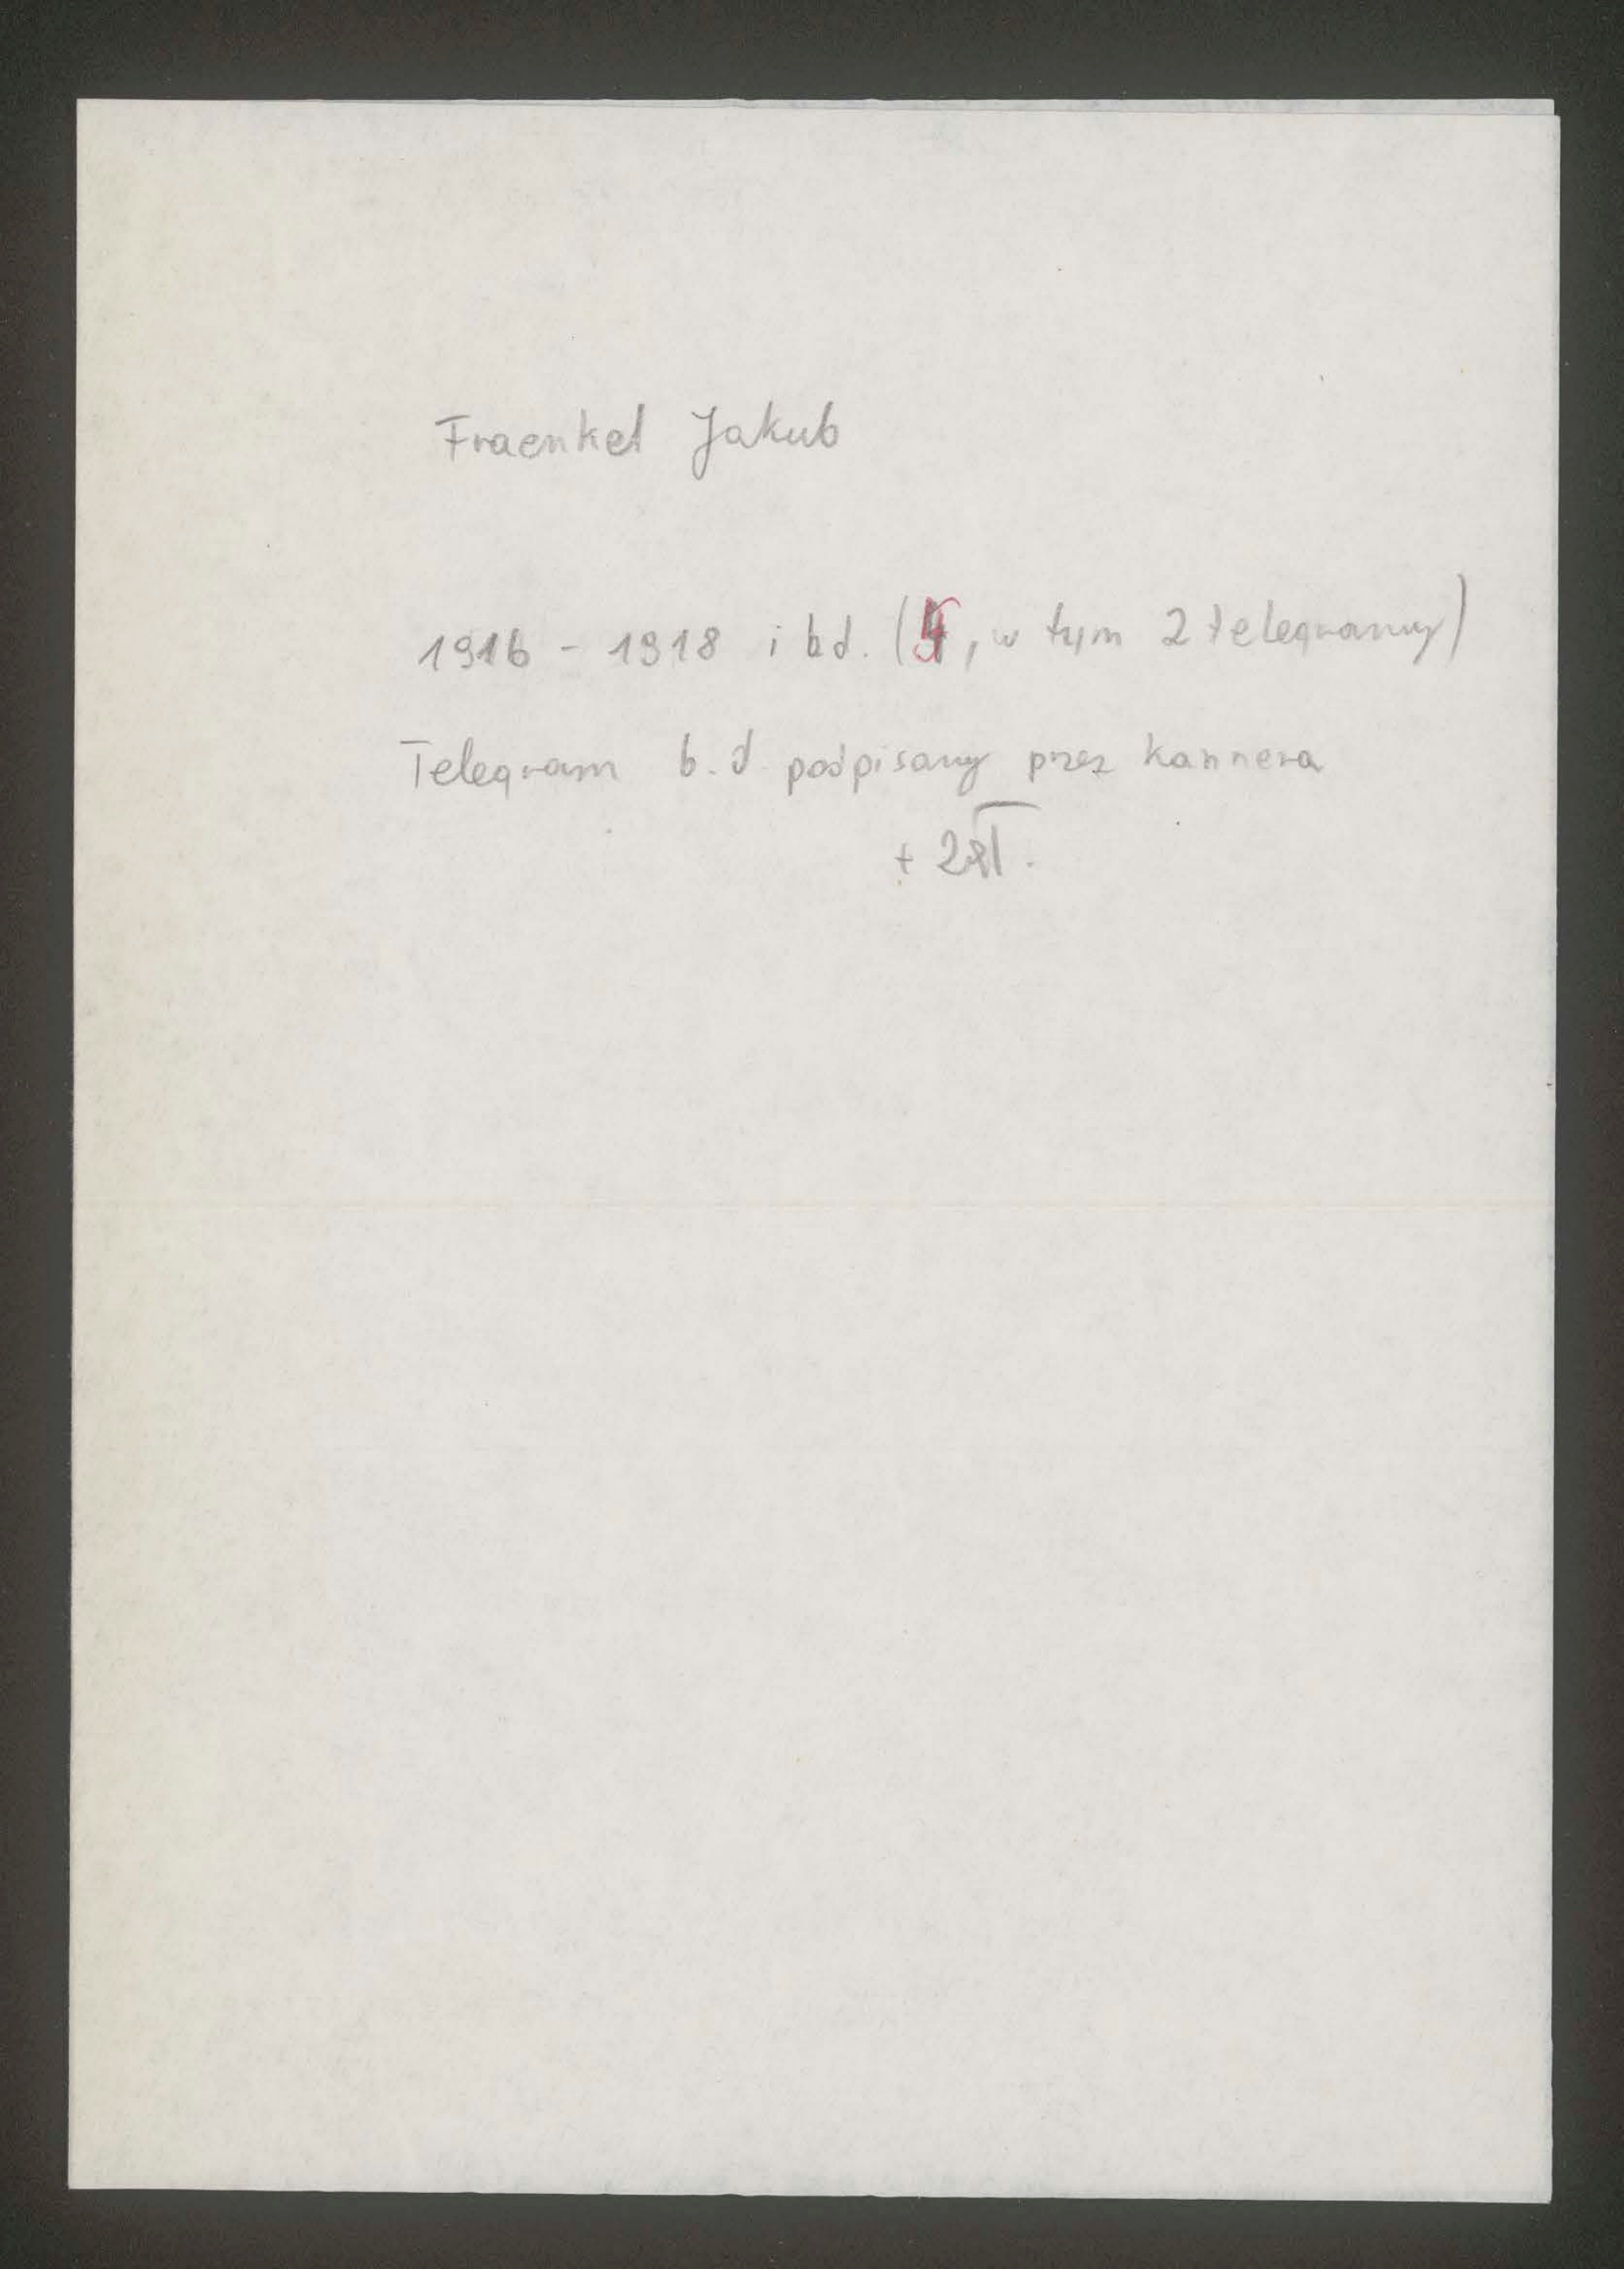 Fraenkel Jakub
1916 - 1918 i bd. (5, w tym 2 telegramy)
Telegram b.d. podpisany przez Kannera
+ 2